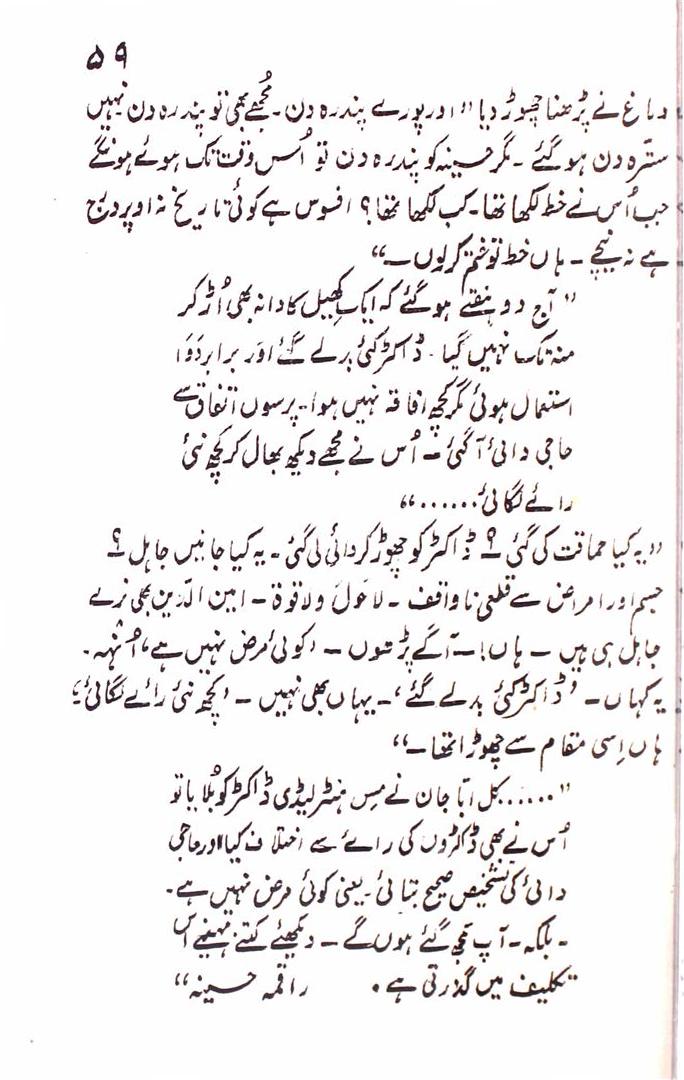 ۵۹
دماغ نے پڑھنا چھوڑ دیا "اور پورے پندرہ دن۔ مُجھے بھی تو پندرہ دن نہیں
سترہ دن ہو گئے ۔ مگر حسینہ کو پندرہ دن تو اُس وقت تک ہوئے ہونگے
جب اُس نے خط لکھا تھا۔ کب لکھا تھا؟ افسوس ہے کوئی تاریخ نہ اوپر درج
ہے نہ نیچے ۔ ہاں خط تو ختم کر لوں ۔"
"آج دو ہفتے ہو گئے کہ ایک کھِیل کا دانہ بھی اُڑ کر
منہ تک نہیں گیا۔ ڈاکٹر کئی بدلے گئے اور برابر دَوا
استعمال ہوئی مگر کچھ افاقہ نہیں ہوا۔ پرسوں اتفاق سے
حاجی دائی آ گئی ۔ اُس نے مجھے دیکھ بھال کر کچھ نئی
رائے لگائی ......"
"یہ کیا حماقت کی گئی ؟ ڈاکٹر کو چھوڑ کر دائی لی گئی ۔ یہ کیا جانیں جاہل ؟
جسم اور امراض سے قطعی ناواقف ۔ لاحول ولا قوة ۔ امین الدّین بھی نرے
جاہل ہی ہیں ۔ ہاں! ۔ آگے پڑھوں ۔ 'کوئی مرض نہیں ہے'، اُنہہ۔
یہ کہاں ۔ 'ڈاکٹر کئی بدلے گئے'، ۔ یہاں بھی نہیں ۔ 'کچھ نئی رائے لگائی'؛
ہاں اِسی مقام سے چھوڑا تھا ۔"
"...... کل ابّا جان نے مِس ہنٹر لیڈی ڈاکٹر کو بُلایا تو
اُس نے بھی ڈاکٹروں کی رائے سے اختلاف کیا اور حاجی
دائی کی تشخیص صحیح بتائی۔ یعنی کوئی مرض نہیں ہے۔
۔ بلکہ ۔ آپ سمجھ گئے ہوں گے ۔ دیکھئے کتنے مہینے اس
تکلیف میں گذرتی ہے ۔ راقمہ حسینہ"